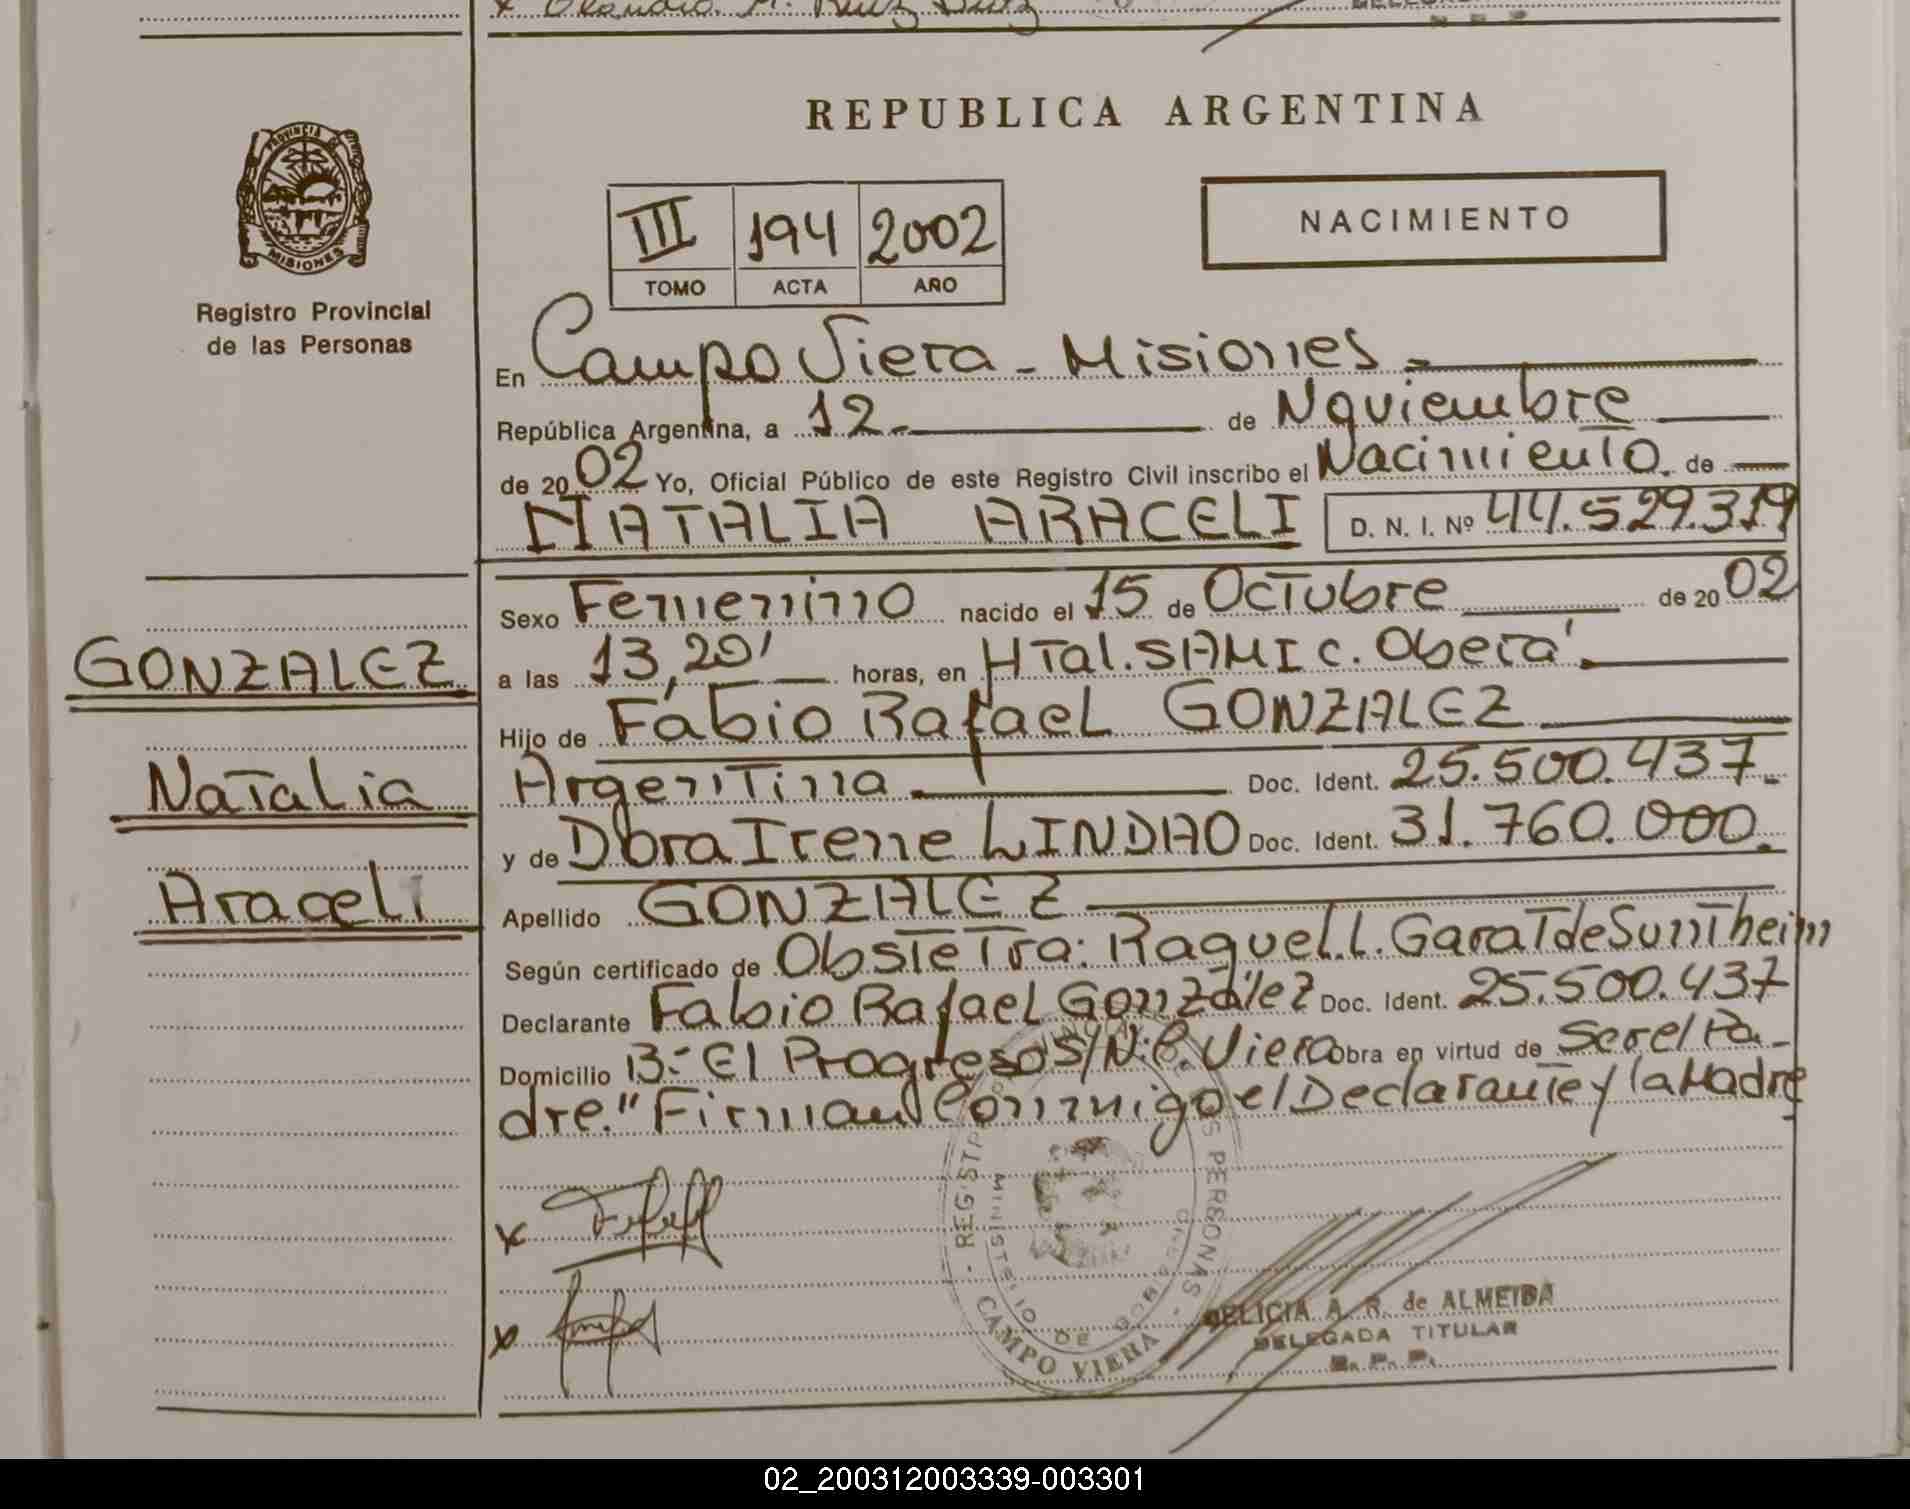 REPUBLICA ARGENTINA
PROVINCIA DE
MISIONES
Registro Provincial
de las Personas
III 194 2002
TOMO ACTA AÑO
NACIMIENTO
En Campo Viera - Misiones =
República Argentina, a 12.- de Noviembre
de 2002 Yo, Oficial Público de este Registro Civil inscribo el Nacimiento. de
NATALIA ARACELI D. N. I. Nº 44.529.319
Sexo Femenino nacido el 15 de Octubre de 2002
a las 13,20' horas, en HTal. SAMIC. Oberá.
Hijo de Fabio Rafael GONZALEZ
Argentina Doc. Ident. 25.500.437.
y de Dora Irene LINDAO Doc. Ident. 31.760.000.
Apellido GONZALEZ
Según certificado de Obstetra: Raquel L. Garat de Sunntheim
Declarante Fabio Rafael González Doc. Ident. 25.500.437
Domicilio B:- El Progreso S/N: C. Viera obra en virtud de Ser el Pa-
dre." Firman Conmigo el Declarante y la Madre
GONZALEZ
Natalia
Araceli
REGISTRO PROVINCIAL DE LAS PERSONAS - CAMPO VIERA -
MINISTERIO DE GOBIERNO
x
x
DELICIA A. R. de ALMEIDA
DELEGADA TITULAR
R. P. P.
02_200312003339-003301